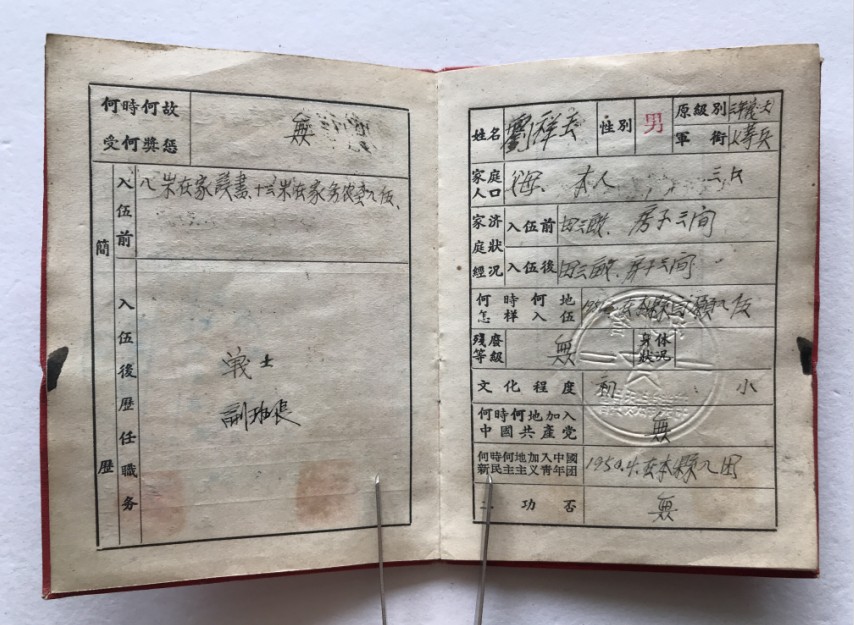 何時何故
受何獎惩
無
簡歷
入伍前
八岁在家讀書、十六岁在家务农至入伍、
入伍後歷任職务
戰士
副班長
姓名
劉祥玄
性別
男
原級別
軍銜
上等兵
家庭
人口
父母、本人 三口
家庭經济狀况
入伍前
田三畝、房子三间
入伍後
田三畝、房子三间
何時何地
怎样入伍
在本縣自願入伍
残廢
等級
無
身体
狀况
文化程度
初小
何時何地加入
中國共產党
無
何時何地加入中國
新民主主义青年团
1950.4.在本縣入团
立功否
無